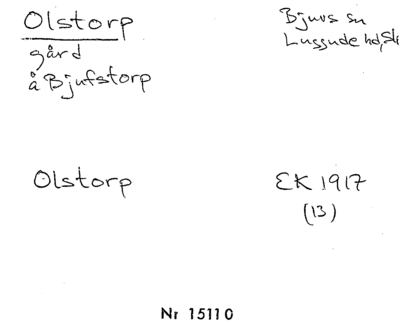 Olstorp
gård
å Bjufstorp
Bjuvs sn
Luggude hd, Sk
Olstorp
EK 1917
(13)
Nr 15110